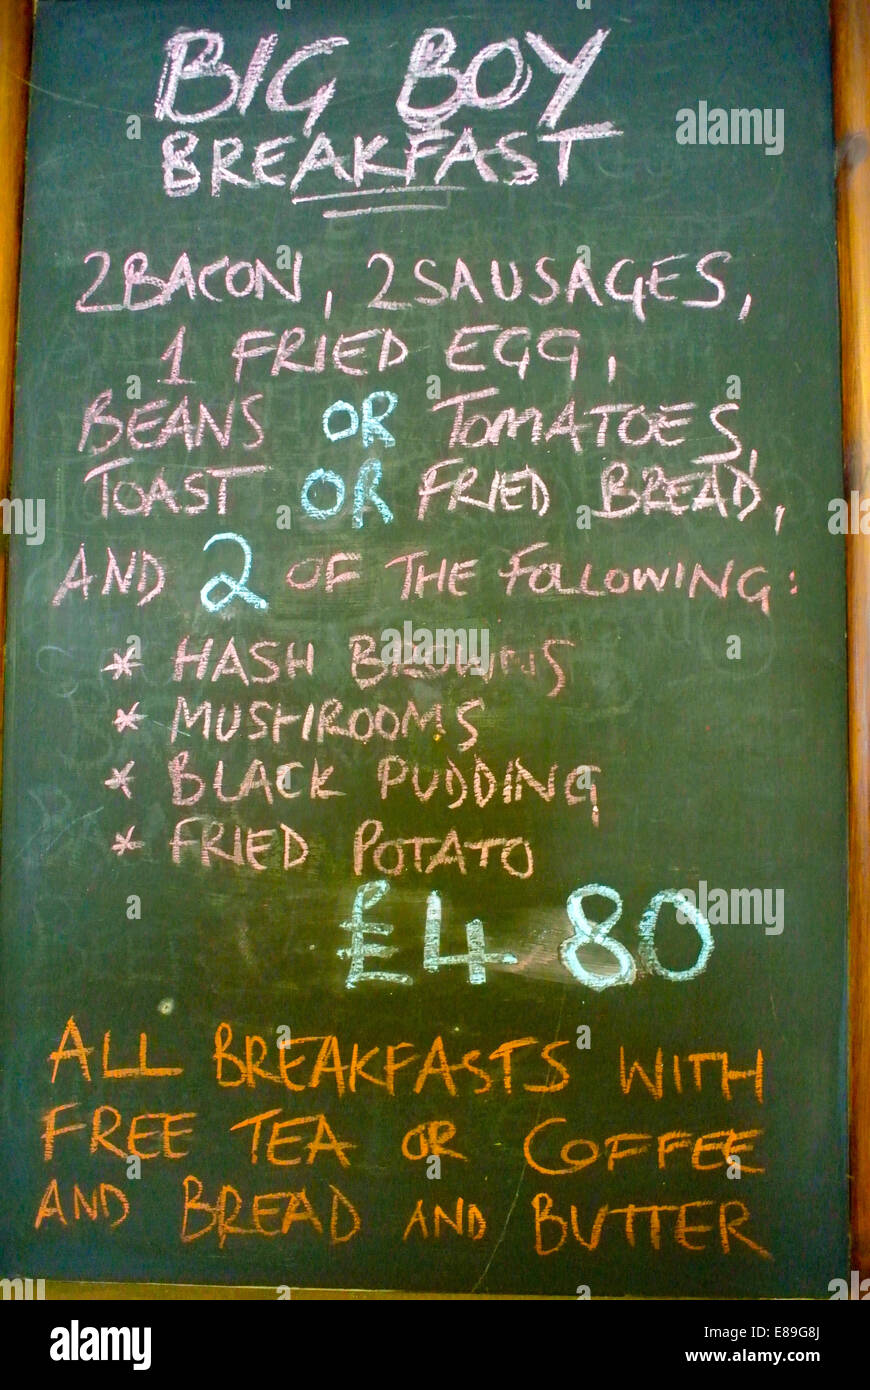 BIG BOY
BREAKFAST
2 BACON, 2 SAUSAGES,
1 FRIED EGG,
BEANS OR TOMATOES,
TOAST OR FRIED BREAD,
AND 2 OF THE FOLLOWING:
* HASH BROWNS
* MUSHROOMS
* BLACK PUDDING
* FRIED POTATO
£4.80
ALL BREAKFASTS WITH
FREE TEA OR COFFEE
AND BREAD AND BUTTER
alamy
alamy stock photo
E89G8J
www.alamy.com